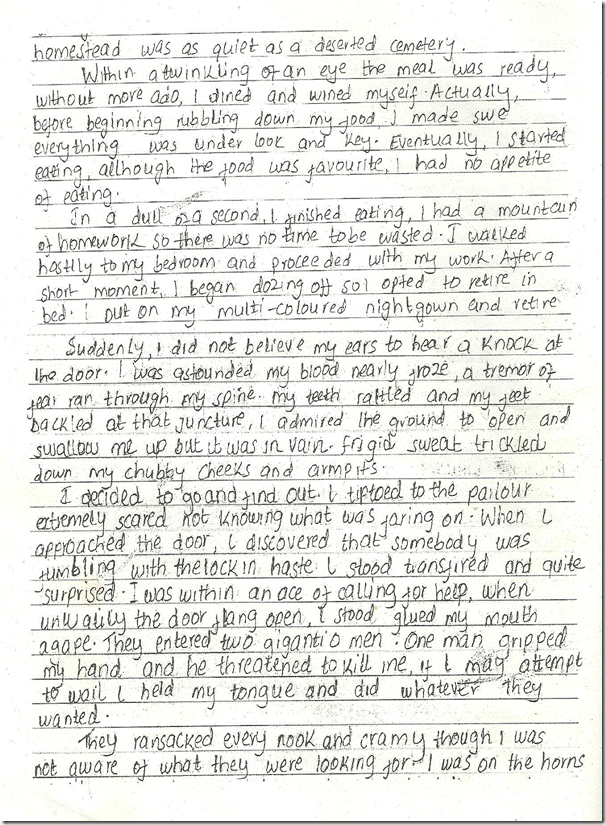 homestead was as quiet as a deserted cemetery.
Within a twinkling of an eye the meal was ready,
without more ado, I dined and wined myself. Actually,
before beginning rubbling down my food, I made swe
everything was under look and key. Eventually, I started
eating, although the food was favourite, I had no appetite
of eating.
In a dull of a second, I finished eating, I had a mountain
of homework so there was no time to be wasted. I walked
hastly to my bedroom and proceeded with my work. After a
short moment, I began dozing off so I opted to retire in
bed. I put on my multi-coloured nightgown and retire
Suddenly, I did not believe my ears to hear a knock at
the door. I was astounded my blood nearly froze, a tremor of
fear ran through my spine. my teeth rattled and my feet
backled at that juncture, I admired the ground to open and
swallow me up but it was in vain. frigid sweat trickled
down my chubby cheeks and armpits.
I decided to go and find out. I tiptoed to the parlour
extremely scared not knowing what was faring on. When I
approached the door, I discovered that somebody was
fumbling with the lock in haste. I stood transfired and quite
surprised. I was within an ace of calling for help, when
unwalily the door flang open, I stood glued my mouth
agape. They entered two gigantic men. One man gripped
my hand and he threatened to kill me, if I may attempt
to wail I held my tongue and did whatever they
wanted.
They ransacked every nook and cramy though I was
not aware of what they were looking for. I was on the horns